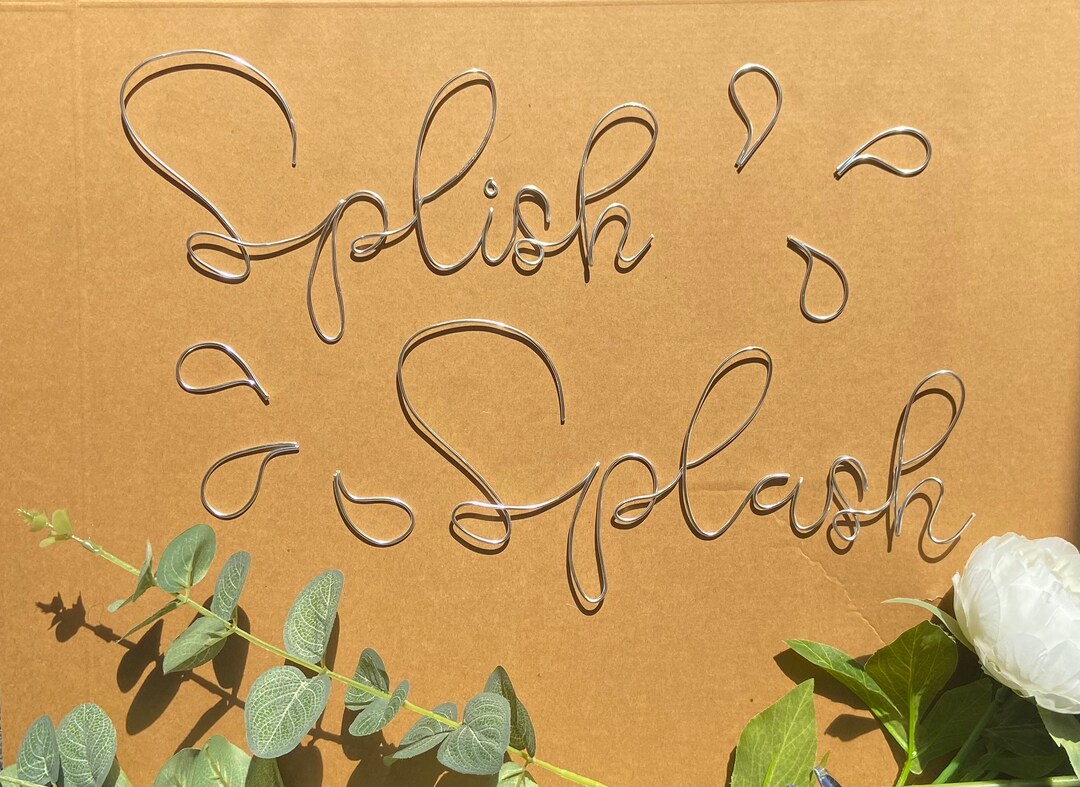 Splish
Splash